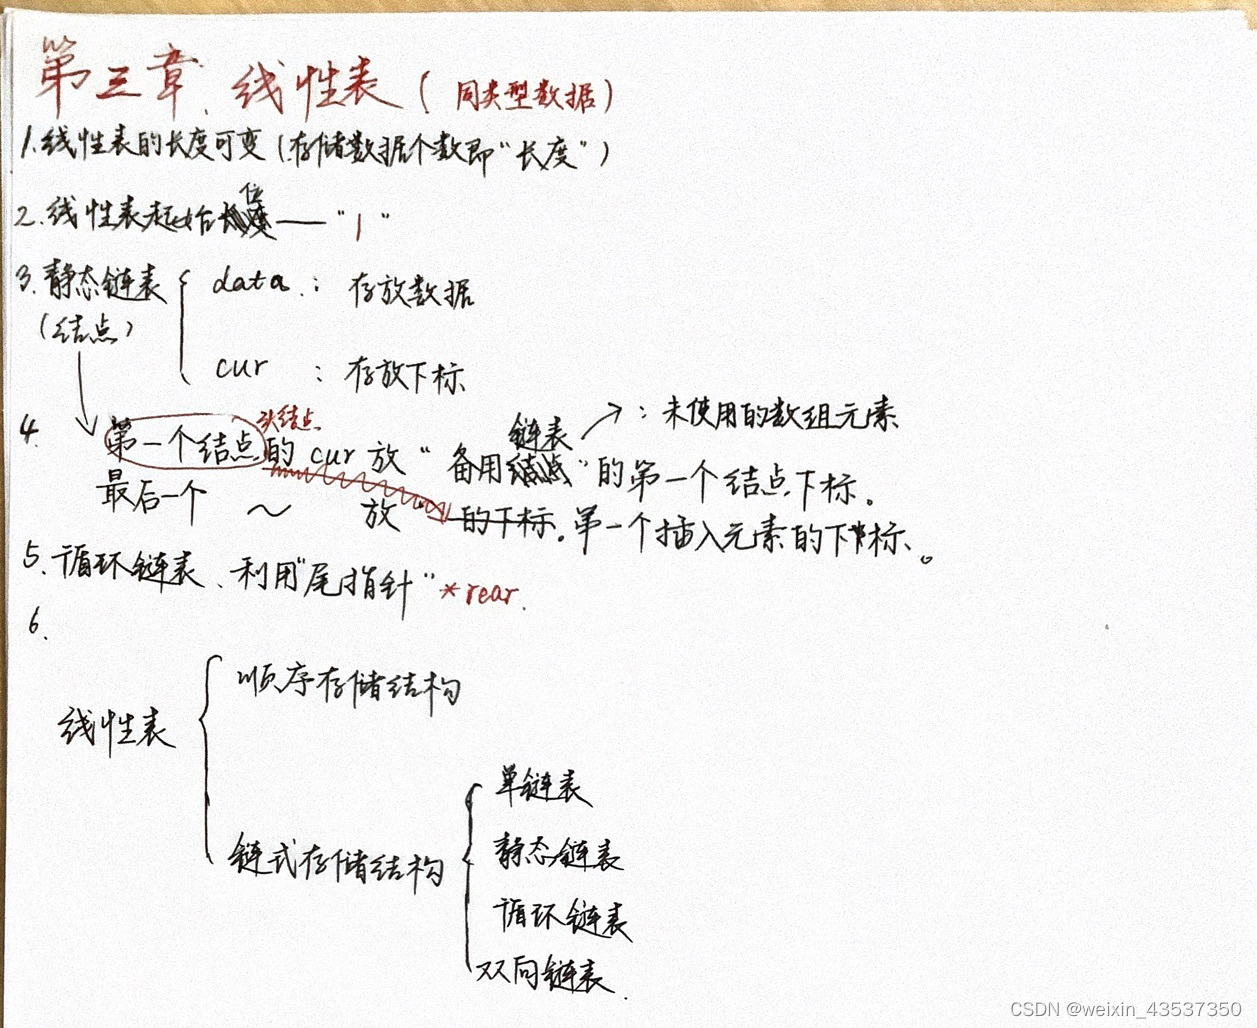 第三章、线性表(同类型数据)
1.线性表的长度可变(存储数据个数即"长度")
2.线性表起始位——"1"
3.静态链表 { data : 存放数据
(结点)
cur : 存放下标
头结点
链表 ↗ : 未使用的数组元素
4. 第一个结点的 cur 放 "备用" 的第一个结点下标。
最后一个 ~ 放 的下标。第一个插入元素的下标、。
5.循环链表、利用"尾指针" *rear.
6.
顺序存储结构
线性表
单链表
静态链表
链式存储结构
循环链表
双向链表.
CSDN @weixin_43537350